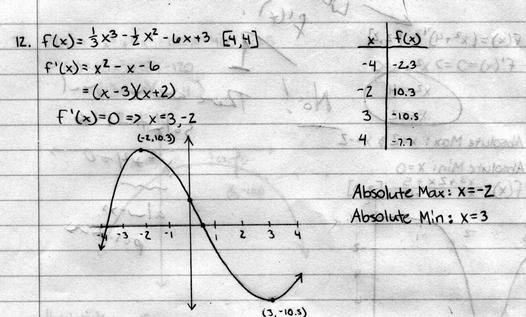 12. f(x) = 1/3 x³ - 1/2 x² - 6x + 3 [4,4]
f'(x) = x² - x - 6
= (x-3)(x+2)
f'(x)=0 => x=3,-2
x | f(x)
-4 | -2.3
-2 | 10.3
3 | -10.5
4 | -7.7
Absolute Max: x=-2
Absolute Min: x=3
(-2,10.3)
-4 -3 -2 -1 1 2 3 4
(3,-10.5)